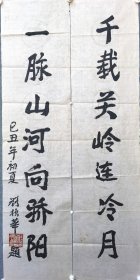 千载关岭连冷月
一脉山河向骄阳
己丑年初夏
刘振华题